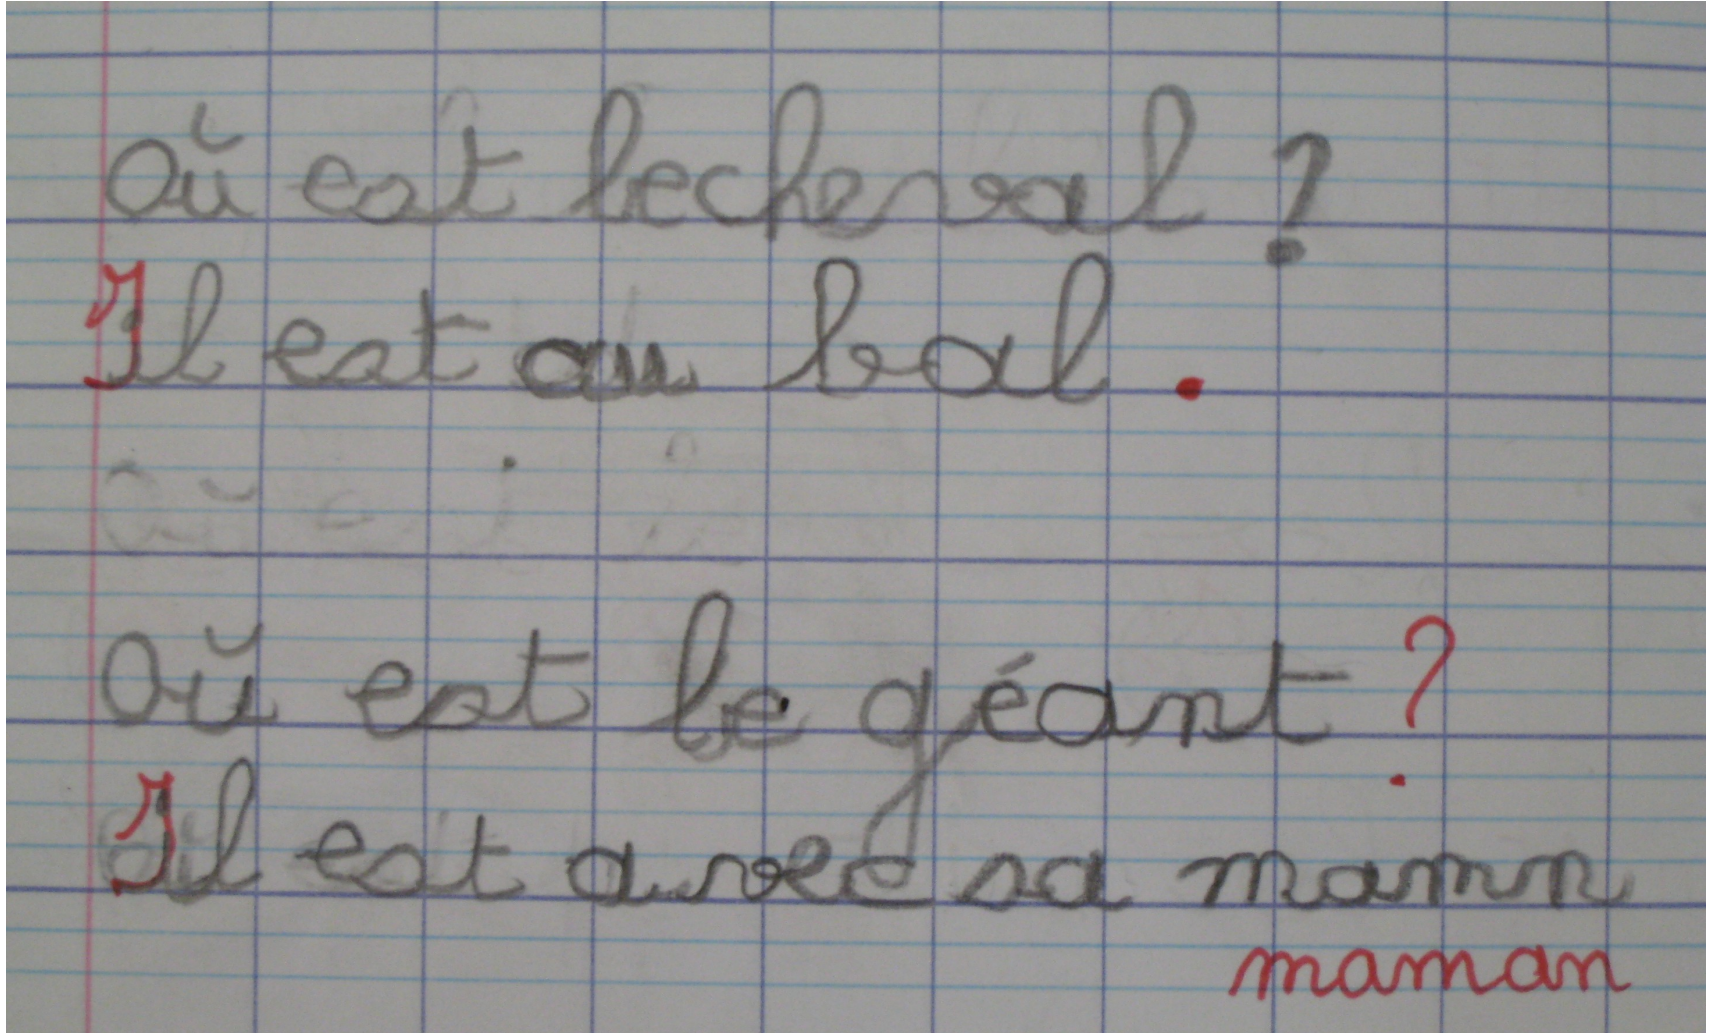 Où est lecheval ?
Il est au bal.
Où est le géant ?
Il est avec sa mamn
maman